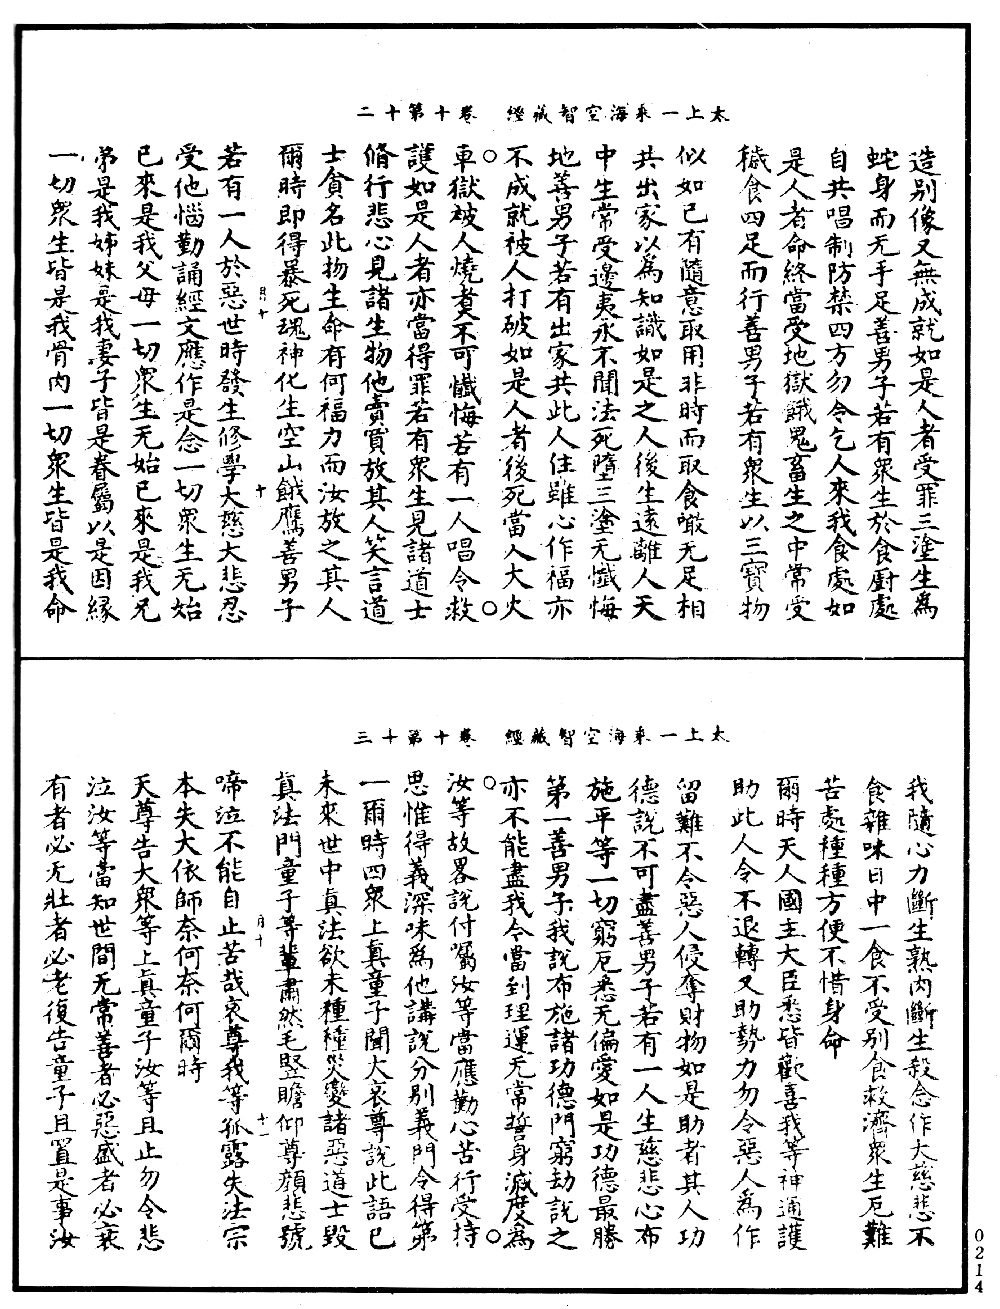 太上一乘海空智藏經　卷十第十二
造別像又無成就如是人者受罪三塗生爲
蛇身而无手足善男子若有衆生於食厨處
自共唱制防禁四方勿令乞人來我食處如
是人者命終當受地獄餓鬼畜生之中常受
穢食四足而行善男子若有衆生以三寶物
似如已有隨意取用非時而取食噉无足相
共出家以爲知識如是之人後生遠離人天
中生常受邊夷永不聞法死墮三塗无懺悔
地善男子若有出家共此人住雖心作福亦
不成就被人打破如是人者後死當入大火
車獄被人燒煑不可懺悔若有一人唱令救
護如是人者亦當得罪若有衆生見諸道士
脩行悲心見諸生物他賣買放其人笑言道
士貪名此物生命有何福力而汝放之其人
爾時即得暴死魂神化生空山餓鷹善男子
若有一人於惡世時發生修學大慈大悲忍
受他惱勤誦經文應作是念一切衆生无始
已來是我父母一切衆生无始已來是我兄
弟是我姊妹是我妻子皆是眷屬以是因緣
一切衆生皆是我骨肉一切衆生皆是我命
月十
十
太上一乘海空智藏經　卷十第十三
我隨心力斷生熟肉斷生殺念作大慈悲不
食雜味日中一食不受別食救濟衆生厄難
苦處種種方便不惜身命
爾時天人國主大臣悉皆歡喜我等神通護
助此人令不退轉又助勢力勿令惡人爲作
留難不令惡人侵奪財物如是助者其人功
德說不可盡善男子若有一人生慈悲心布
施平等一切窮厄悉无偏愛如是功德最勝
第一善男子我說布施諸功德門窮劫說之
亦不能盡我今當到理運无常誓身滅度爲
汝等故畧說付屬汝等當應勤心苦行受持
思惟得義深味爲他講說分別義門令得第
一爾時四衆上眞童子聞大哀尊說此語已
未來世中眞法欲末種種災變諸惡道士毀
眞法門童子等輩肅然毛竪瞻仰尊顏悲號
啼泣不能自止苦哉哀尊我等孤露失法宗
本失大依師奈何奈何爾時
天尊告大衆等上眞童子汝等且止勿令悲
泣汝等當知世間无常善者必惡盛者必衰
有者必无壯者必老復告童子且置是事汝
月十
十一
0214